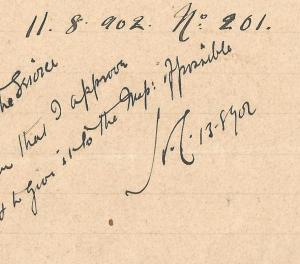 11. 8. 902. No: 201.
the Service
that I approve
to give it to the Insp: if possible
13-8-902